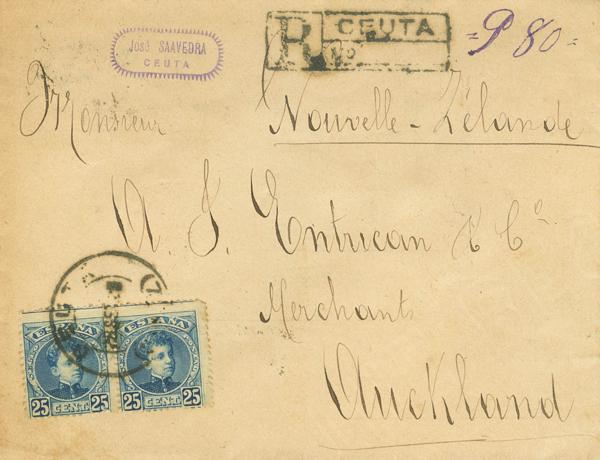 José SAAVEDRA
CEUTA
R CEUTA
No
=P 80=
Monsieur
Nouvelle-Zélande
A. J. Entrican & Co
Merchants
Auckland
CEUTA
ESPAÑA
25 CENT. 25
ESPAÑA
25 CENT. 25